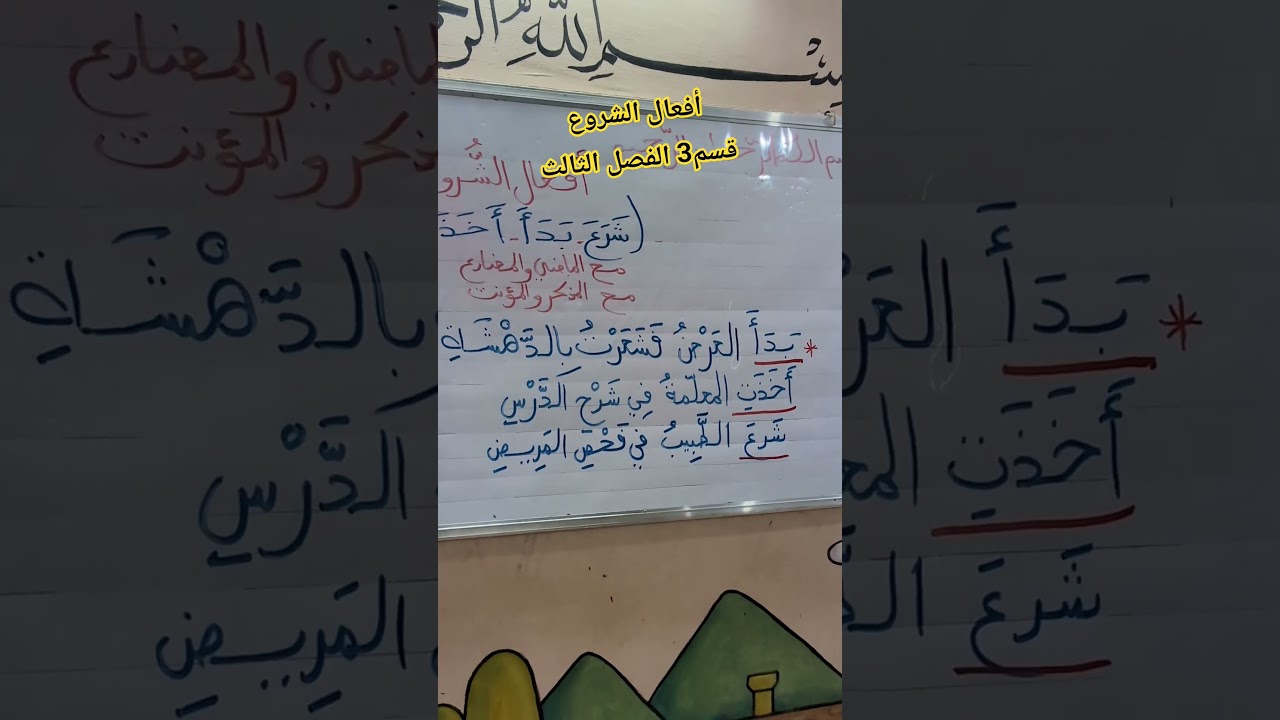 سم الله الر
أفعال الشروع
قسم3 الفصل الثالث
أفعال الشُّرو
(شَرَعَ - بَدَأَ - أَخَذَ
مع الماضي والمضارع
مع المذكر والمؤنث
* بَدَأَ العَرْضُ فَشَعَرْتُ بِالدَّهْشَةِ
أَخَذَتِ المعلّمةُ فِي شَرْحِ الدَّرْسِ
شَرعَ الطَّبِيبُ في فَحْصِ المَرِيضِ